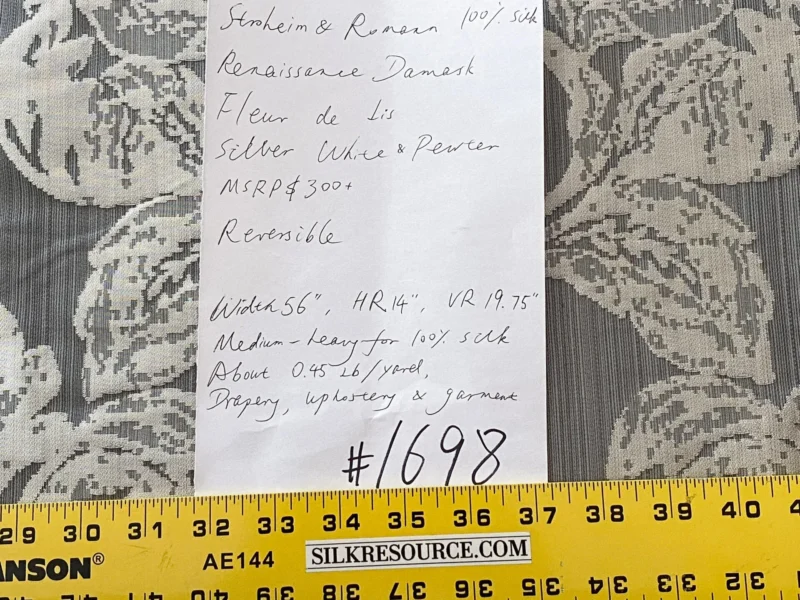 Stroheim & Romann 100% silk
Renaissance Damask
Fleur de Lis
Silver White & Pewter
MSRP$300+
Reversible
Width 56", HR 14", VR 19.75"
Medium-heavy for 100% silk
About 0.45 Lb/yard,
Drapery, uphostery & garment
#1698
29 30 31 32 33 34 35 36 37 38 39 40 4
ANSON® AE144 SILKRESOURCE.COM
40 39 38 37 36 35 34 33 32